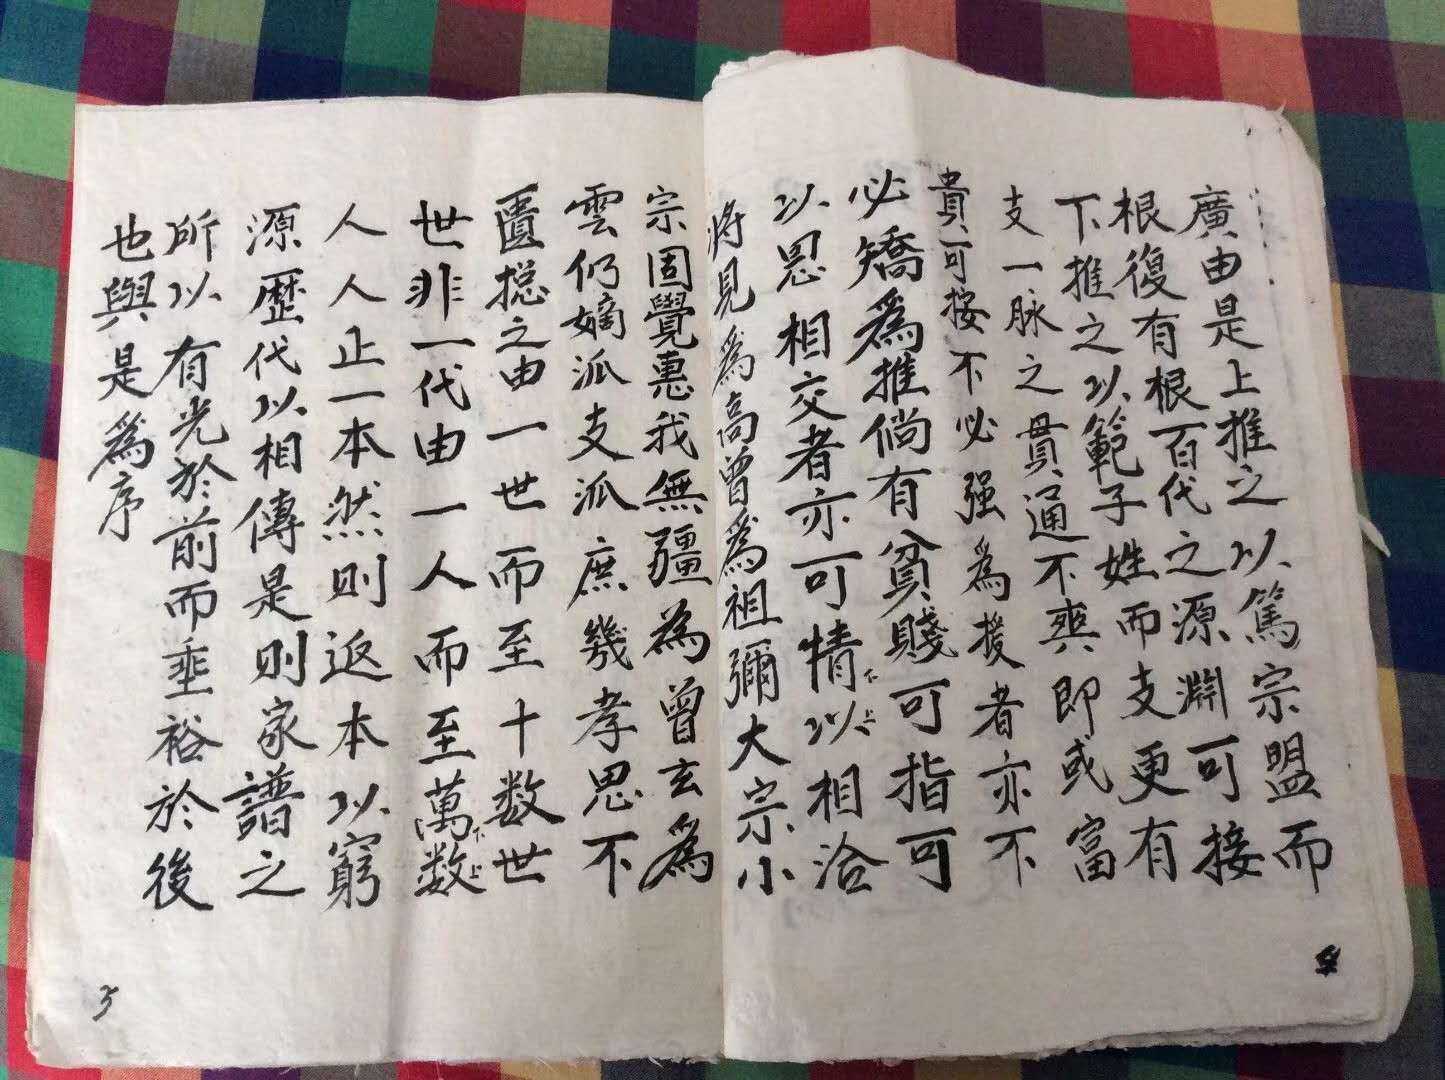 廣由是上推之以篤宗盟而
根復有根百代之源淵可接
下推之以範子姓而支更有
支一脉之貫通不爽即或富
貴可接不必强為援者亦不
必矯爲推倘有貧賤可指可
以恩相交者亦可情以相洽
下上
將見為高曾為祖彌大宗小
宗固覺惠我無疆為曾玄為
雲仍嫡派支派庶幾孝思不
匱摠之由一世而至十数世
世非一代由一人而至萬数
下上
人人止一本然則返本以窮
源歷代以相傳是則家譜之
所以有光於前而垂裕於後
也與是為序
4
5